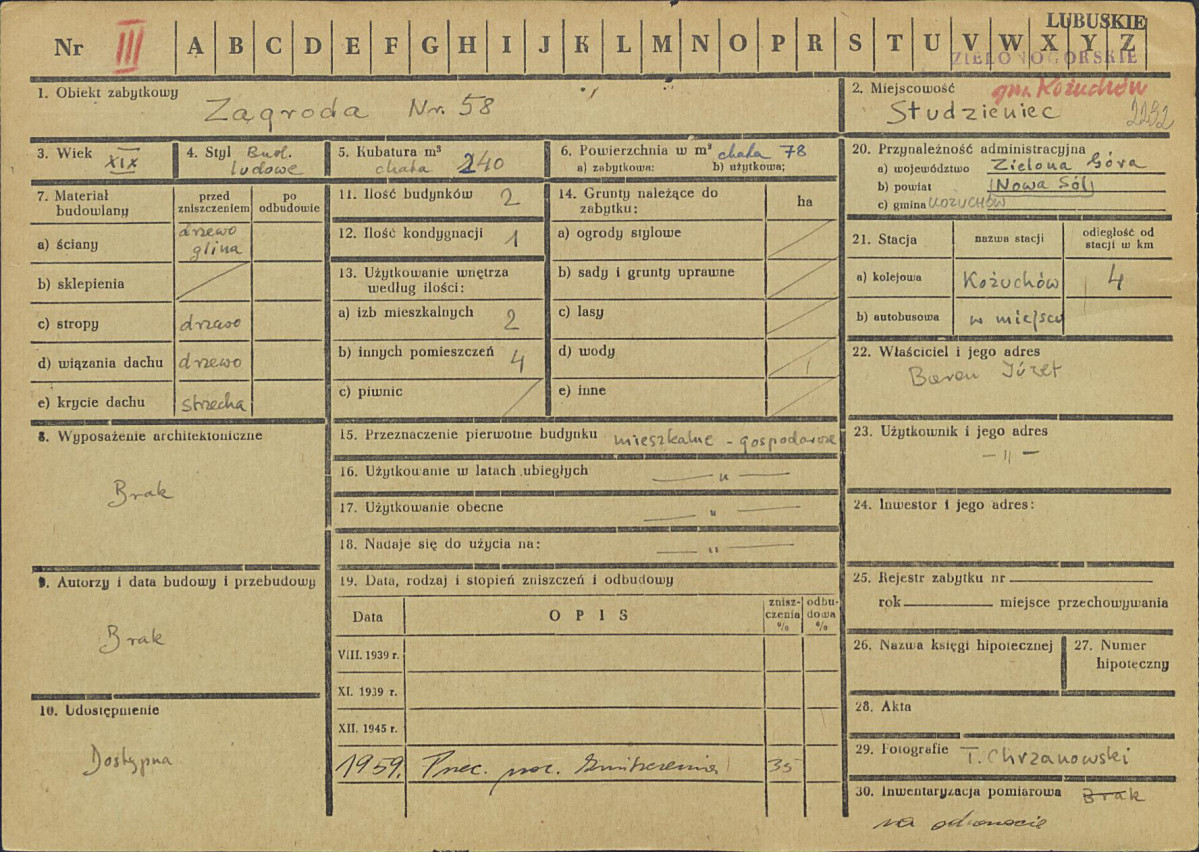 LUBUSKIE
Nr III A B C D E F G H I J K L M N O P R S T U V W X Y Z
ZIELONOGÓRSKIE
1. Obiekt zabytkowy
Zagroda Nr. 58
2. Miejscowość gm. Kożuchów
Studzieniec 2292
3. Wiek
XIX
4. Styl Bud.
ludowe
5. Kubatura m³
chata 240
6. Powierzchnia w m² chata 78
a) zabytkowa: b) użytkowa;
20. Przynależność administracyjna
a) województwo Zielona Góra
b) powiat (Nowa Sól)
c) gmina KOŻUCHÓW
7. Materiał budowlany
przed zniszczeniem
po odbudowie
a) ściany drzewo
glina
b) sklepienia
c) stropy drzewo
d) wiązania dachu drzewo
e) krycie dachu strzecha
11. Ilość budynków 2
12. Ilość kondygnacji 1
13. Użytkowanie wnętrza
według ilości:
a) izb mieszkalnych 2
b) innych pomieszczeń 4
c) piwnic
14. Grunty należące do
zabytku: ha
a) ogrody stylowe
b) sady i grunty uprawne
c) lasy
d) wody
e) inne
21. Stacja
nazwa stacji
odległość od
stacji w km
a) kolejowa Kożuchów 4
b) autobusowa w miejscu
22. Właściciel i jego adres
Baran Józef
23. Użytkownik i jego adres
— " —
24. Inwestor i jego adres:
8. Wyposażenie architektoniczne
Brak
9. Autorzy i data budowy i przebudowy
Brak
10. Udostępnienie
Dostępna
15. Przeznaczenie pierwotne budynku mieszkalne - gospodarcze
16. Użytkowanie w latach ubiegłych — " —
17. Użytkowanie obecne — " —
18. Nadaje się do użycia na: — " —
19. Data, rodzaj i stopień zniszczeń i odbudowy
Data
OPIS
znisz-
czenia
%
odbu-
dowa
%
VIII. 1939 r.
XI. 1939 r.
XII. 1945 r.
1959. 35
25. Rejestr zabytku nr
rok miejsce przechowywania
26. Nazwa księgi hipotecznej
27. Numer
hipoteczny
28. Akta
29. Fotografie T. Chrzanowski
30. Inwentaryzacja pomiarowa Brak
na odwrocie